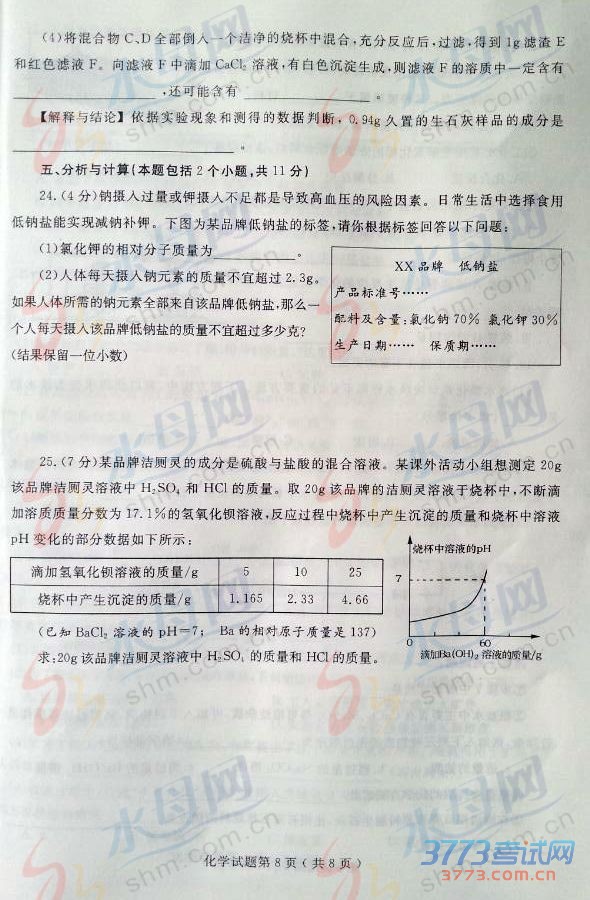 (4)将混合物 C、D全部倒入一个洁净的烧杯中混合,充分反应后,过滤,得到 1g 滤渣 E
和红色滤液 F。向滤液 F 中滴加 CaCl₂ 溶液,有白色沉淀生成,则滤液 F 的溶质中一定含有
,还可能含有 。
【解释与结论】依据实验现象和测得的数据判断,0.94g 久置的生石灰样品的成分是
。
五、分析与计算(本题包括 2 个小题,共 11 分)
24.(4 分)钠摄入过量或钾摄入不足都是导致高血压的风险因素。日常生活中选择食用
低钠盐能实现减钠补钾。下图为某品牌低钠盐的标签,请你根据标签回答以下问题:
(1)氯化钾的相对分子质量为 。
(2)人体每天摄入钠元素的质量不宜超过 2.3g。
如果人体所需的钠元素全部来自该品牌低钠盐,那么一
个人每天摄入该品牌低钠盐的质量不宜超过多少克?
(结果保留一位小数)
XX 品牌 低钠盐
产品标准号……
配料及含量:氯化钠 70% 氯化钾 30%
生产日期…… 保质期……
25.(7 分)某品牌洁厕灵的成分是硫酸与盐酸的混合溶液。某课外活动小组想测定 20g
该品牌洁厕灵溶液中 H₂SO₄ 和 HCl 的质量。取 20g 该品牌的洁厕灵溶液于烧杯中,不断滴
加溶质质量分数为 17.1%的氢氧化钡溶液,反应过程中烧杯中产生沉淀的质量和烧杯中溶液
pH 变化的部分数据如下所示:
滴加氢氧化钡溶液的质量/g 5 10 25
烧杯中产生沉淀的质量/g 1.165 2.33 4.66
(已知 BaCl₂ 溶液的 pH=7; Ba 的相对原子质量是 137)
求:20g 该品牌洁厕灵溶液中 H₂SO₄ 的质量和 HCl 的质量。
烧杯中溶液的pH
7
0 60
滴加Ba(OH)₂ 溶液的质量/g
化学试题第 8 页(共 8 页)
水母网
shm.com.cn
3773考试网
3773.com.cn